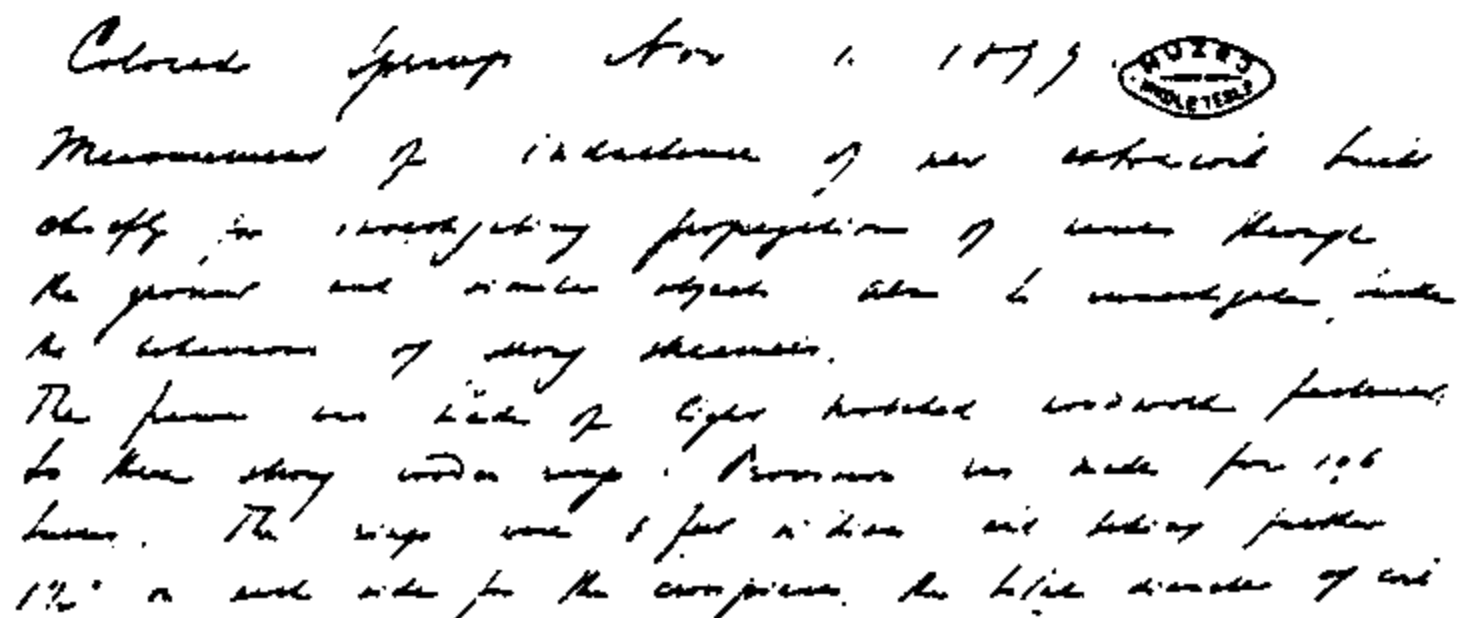 Colorado Springs Nov 1. 1899.
MUZEJ NIKOLE TESLE
Measurement of inductance of new extra coil built
chiefly for investigating propagation of waves through
the ground and similar objects also to investigate further
the behaviour of strong streamers.
The frame was made of light notched woodwork fastened
to three strong wooden rings. Provision was made for 106
turns. The rings were 8 feet in diam and taking further
1 1/2" on each side for the cross pieces the total diameter of coil